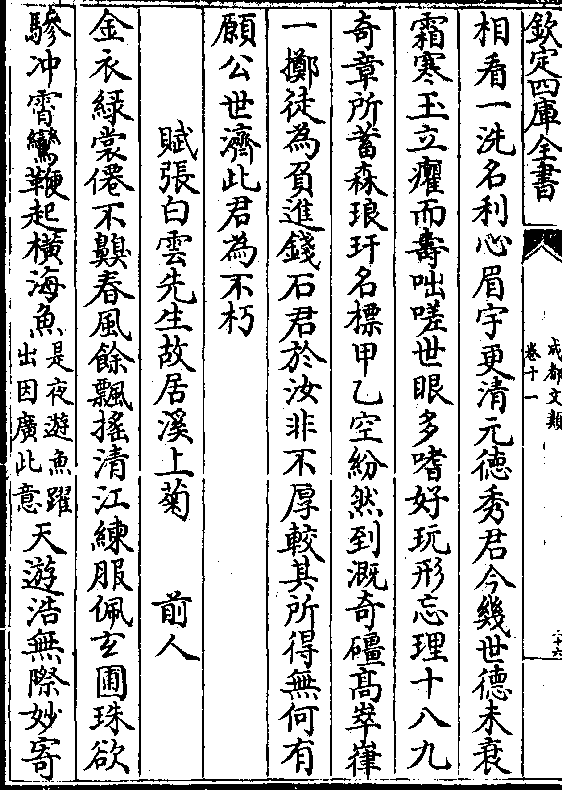 欽定四庫全書
成都文類
卷十一
二十六
相看一洗名利心眉宇更清元德秀君今幾世德未衰
霜寒玉立癯而壽咄嗟世眼多嗜好玩形忘理十八九
奇章所蓄森琅玕名標甲乙空紛然到溉奇礓高崒嵂
一擲徒為負進錢石君於汝非不厚較其所得無何有
願公世濟此君為不朽
賦張白雲先生故居溪上菊　前人
金衣綠裳僊不齅春風餘飄搖清江練服佩玄圃珠欲
驂冲霄鸞鞭起橫海魚是夜遊魚躍出因廣此意天遊浩無際妙寄